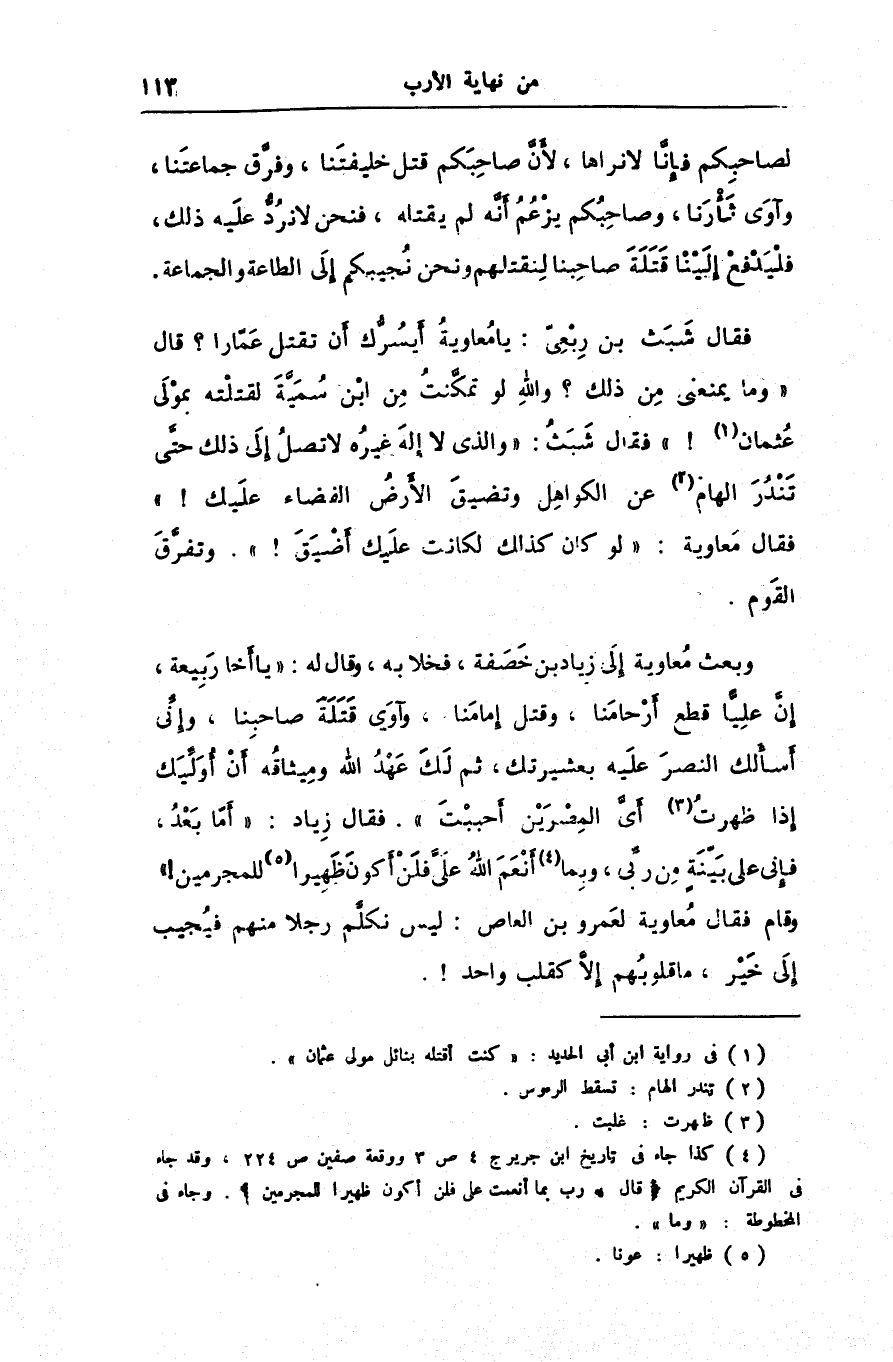 من نهاية الأرب
١١٣
لصاحبِكم فإِنَّا لانراها ، لأَنَّ صاحِبَكم قتل خليفتَنا ، وفرَّق جماعتَنا ،
وآوَى ثَأْرَنا ، وصاحِبُكم يزْعُمُ أَنَّه لم يقتله ، فنحن لانردُّ علَيه ذلك ،
فلْيَدْفعْ إِلَيْنْا قَتَلَةَ صاحِبنا لِنقتلهم ونحن نُجيبكم إِلَى الطاعة والجماعة .
فقال شَبَث بن رِبْعِىّ : يامُعاويةُ أَيسُرُّك أَن تقتل عَمّارا ؟ قال
« وما يمنعنى مِن ذلك ؟ واللهِ لو تمكَّنتُ مِن ابْن سُمَيَّةَ لقتلْته بموْلَى
عُثمان(١) ! » فقال شَبَثُ : « والذى لا إلهَ غيرُه لاتصلُ إِلَى ذلك حتَّى
تَنْدُرَ الهام(٢) عن الكواهِل وتضيقَ الأَرضُ الفضاء علَيك ! »
فقال مَعاوية : « لو كان كذلك لكانت علَيك أَضْيَقَ ! » . وتفرَّقَ
القَوم .
وبعث مُعاوية إِلَى زيادبن خَصَفة ، فخلا به ، وقال له : « ياأَخا رَبيعة ،
إِنَّ علِيًّا قطع أَرْحامَنا ، وقتل إمامَنا ، وآوَي قَتَلَةَ صاحبنا ، وإنِّى
أَسأَلك النصرَ علَيه بعشيرتك ، ثم لَكَ عَهْدُ الله ومِيثاقُه أَنْ أُولِّيَك
إذا ظهرتُ(٣) أَىَّ المِصْرَيْن أَحببْتَ » . فقال زِياد : « أَمَّا بَعْدُ ،
فإنى على بَيِّنَةٍ مِن ربِّى ، وبِما(٤) أَنْعَمَ اللهُ علَىَّ فلَنْ أَكونَ ظَهِيرا(٥) للمجرمين !»
وقام فقال مُعاوية لعَمرو بن العاص : ليس نكلَّم رجلا منهم فيُجيب
إِلَى خَيْر ، ماقلوبُهم إلاَّ كقلب واحد ! .
( ١ ) فى رواية ابن أبى الحديد : « كنت أقتله بنائل مولى عثمان » .
( ٢ ) تندر الهام : تسقط الرءوس .
( ٣ ) ظهرت : غلبت .
( ٤ ) كذا جاء فى تاريخ ابن جرير ج ٤ ص ٣ ووقعة صفين ص ٢٢٤ ، وقد جاء
فى القرآن الكريم ﴿ قال » رب بما أنعمت على فلن أكون ظهيرا للمجرمين ﴾ . وجاء فى
المخطوطة : « وما » .
( ٥ ) ظهيرا : عونا .